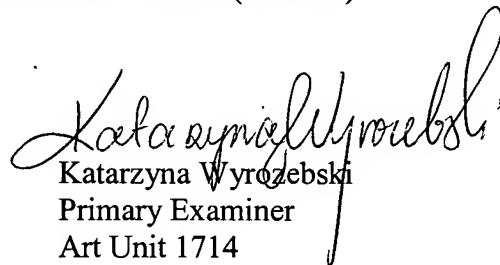 Katarzyna Wyrozebski
Katarzyna Wyrozebski
Primary Examiner
Art Unit 1714